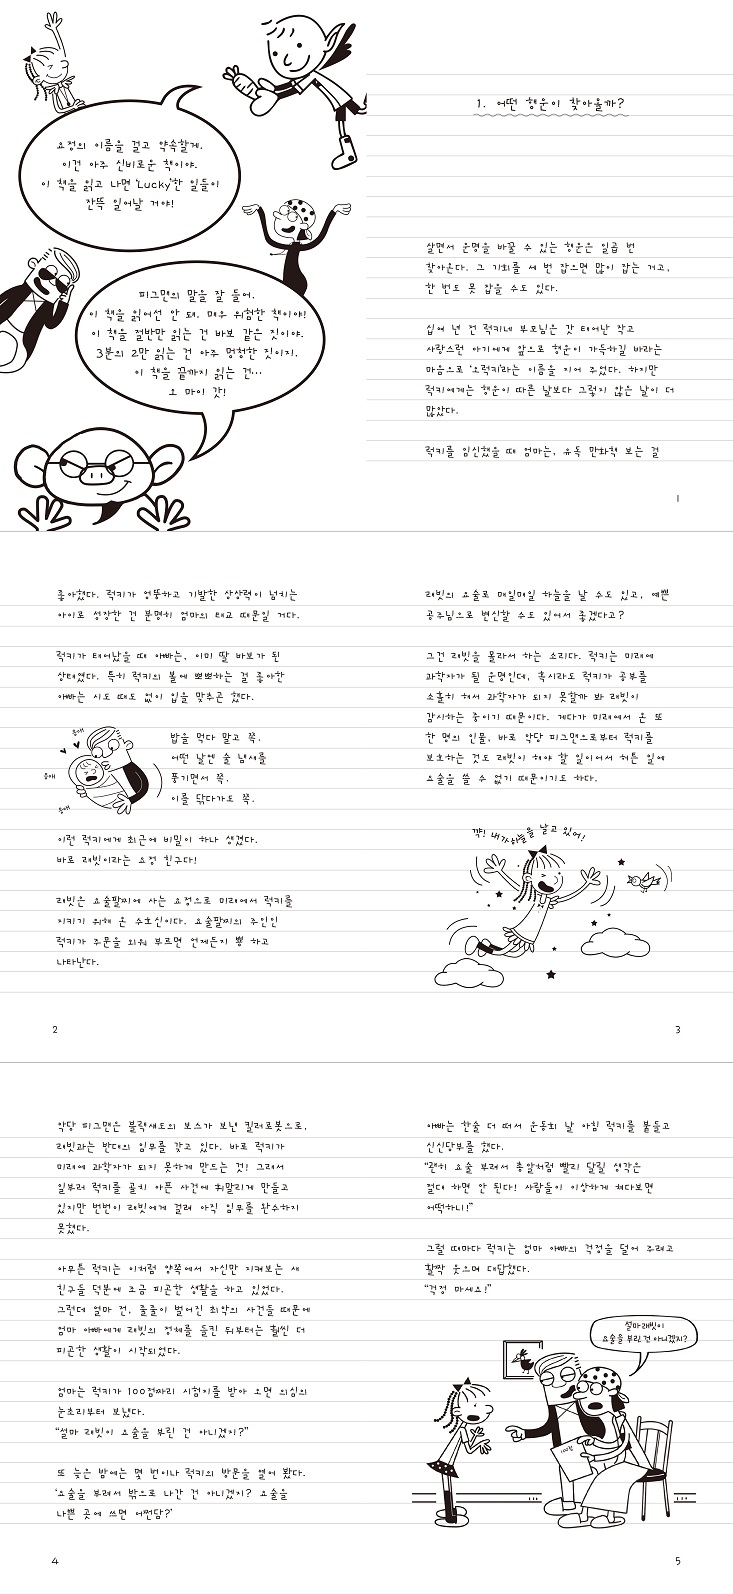 요정의 이름을 걸고 약속할게.
이건 아주 신비로운 책이야.
이 책을 읽고 나면 'Lucky'한 일들이
잔뜩 일어날 거야!
피그맨의 말을 잘 들어.
이 책을 읽어선 안 돼. 매우 위험한 책이야!
이 책을 절반만 읽는 건 바보 같은 짓이야.
3분의 2만 읽는 건 아주 멍청한 짓이지.
이 책을 끝까지 읽는 건…
오 마이 갓!
1. 어떤 행운이 찾아올까?
살면서 운명을 바꿀 수 있는 행운은 일곱 번
찾아온다. 그 기회를 세 번 잡으면 많이 잡는 거고,
한 번도 못 잡을 수도 있다.
십여 년 전 럭키네 부모님은 갓 태어난 작고
사랑스런 아기에게 앞으로 행운이 가득하길 바라는
마음으로 '오럭키'라는 이름을 지어 주었다. 하지만
럭키에게는 행운이 따른 날보다 그렇지 않은 날이 더
많았다.
럭키를 임신했을 때 엄마는, 유독 만화책 보는 걸
1
좋아했다. 럭키가 엉뚱하고 기발한 상상력이 넘치는
아이로 성장한 건 분명히 엄마의 태교 때문일 거다.
럭키가 태어났을 때 아빠는, 이미 딸 바보가 된
상태였다. 특히 럭키의 볼에 뽀뽀하는 걸 좋아한
아빠는 시도 때도 없이 입을 맞추곤 했다.
응애
응애
응애
밥을 먹다 말고 쪽.
어떤 날엔 술 냄새를
풍기면서 쪽.
이를 닦다가도 쪽.
이런 럭키에게 최근에 비밀이 하나 생겼다.
바로 래빗이라는 요정 친구다!
래빗은 요술팔찌에 사는 요정으로 미래에서 럭키를
지키기 위해 온 수호신이다. 요술팔찌의 주인인
럭키가 주문을 외워 부르면 언제든지 뿅 하고
나타난다.
2
래빗의 요술로 매일매일 하늘을 날 수도 있고, 예쁜
공주님으로 변신할 수도 있어서 좋겠다고?
그건 래빗을 몰라서 하는 소리다. 럭키는 미래에
과학자가 될 운명인데, 혹시라도 럭키가 공부를
소홀히 해서 과학자가 되지 못할까 봐 래빗이
감시하는 중이기 때문이다. 게다가 미래에서 온 또
한 명의 인물, 바로 악당 피그맨으로부터 럭키를
보호하는 것도 래빗이 해야 할 일이어서 허튼 일에
요술을 쓸 수 없기 때문이기도 하다.
꺅! 내가 하늘을 날고 있어!
3
악당 피그맨은 블랙섀도의 보스가 보낸 킬러로봇으로,
래빗과는 반대의 임무를 갖고 있다. 바로 럭키가
미래에 과학자가 되지 못하게 만드는 것! 그래서
일부러 럭키를 골치 아픈 사건에 휘말리게 만들고
있지만 번번이 래빗에게 걸려 아직 임무를 완수하지
못했다.
아무튼 럭키는 이처럼 양쪽에서 자신만 지켜보는 새
친구들 덕분에 조금 피곤한 생활을 하고 있었다.
그런데 얼마 전, 줄줄이 벌어진 최악의 사건들 때문에
엄마 아빠에게 래빗의 정체를 들킨 뒤부터는 훨씬 더
피곤한 생활이 시작되었다.
엄마는 럭키가 100점짜리 시험지를 받아 오면 의심의
눈초리부터 보냈다.
"설마 래빗이 요술을 부린 건 아니겠지?"
또 늦은 밤에는 몇 번이나 럭키의 방문을 열어 봤다.
'요술을 부려서 밖으로 나간 건 아니겠지? 요술을
나쁜 곳에 쓰면 어쩐담?'
4
아빠는 한술 더 떠서 운동회 날 아침 럭키를 붙들고
신신당부를 했다.
"괜히 요술 부려서 총알처럼 빨리 달릴 생각은
절대 하면 안 된다! 사람들이 이상하게 쳐다보면
어떡하니!"
그럴 때마다 럭키는 엄마 아빠의 걱정을 덜어 주려고
활짝 웃으며 대답했다.
"걱정 마세요!"
설마 래빗이
요술을 부린 건 아니겠지?
100점
5